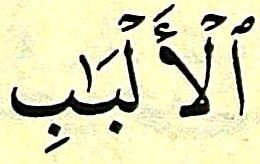 ٱلۡأَلۡبَٰبِ